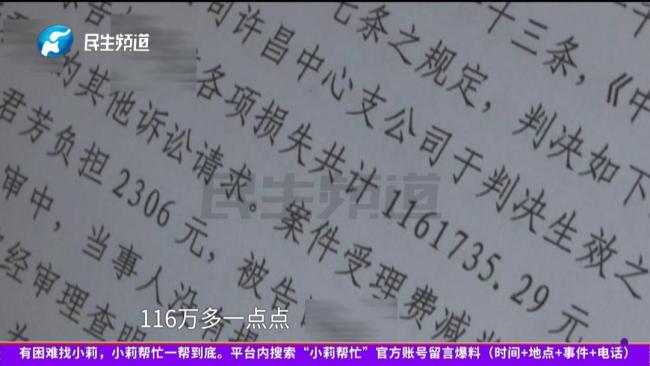 民生频道
十三条，《中
七条之规定，判决如下
司许昌中心支公司于判决生效之
各项损失共计1161735.29元
的其他诉讼请求。案件受理费减
君芳负担2306元，被告
审中，当事人没
经审理查明
民生频道
116万多一点点
有困难找小莉，小莉帮忙一帮到底。平台内搜索“小莉帮忙”官方账号留言爆料（时间+地点+事件+电话）